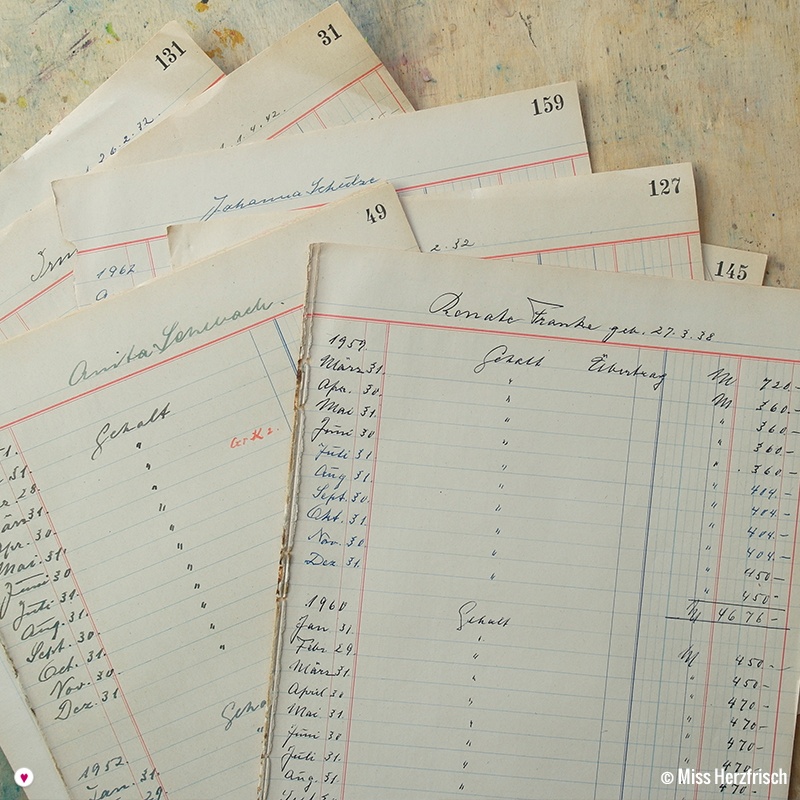 131
26.2.32.
31
1.4.42.
159
Johanna Schulze
1962
127
2.32
145
49
Anita
Gehalt
"
"
"
"
"
"
"
"
"
"
31.
28.
März 31.
Apr. 30.
Mai. 31.
Juni 30
Juli 31
Aug. 31.
Sept. 30.
Oct. 31.
Nov. 30
Dez. 31
1952.
Jan. 31.
29.
Renate Franke geb. 27.3.38
1959
Gehalt Übertrag M 720.-
März 31. " M 360.-
Apr. 30. " " 360.-
Mai 31. " " 360.-
Juni 30 " " 360.-
Juli 31 " " 404.-
Aug 31. " " 404.-
Sept. 30. " " 404.-
Okt. 31. " " 404.-
Nov. 30. " " 450-
Dez 31. " " 450-
M 4676-
1960 Gehalt
Jan 31. " M 450.-
Febr. 29 " " 450.-
März 31. " " 470.-
April 30 " " 470.-
Mai 31 " " 470-
Juni 30 " " 470-
Juli 31. " " 470.-
Aug. 31.
© Miss Herzfrisch